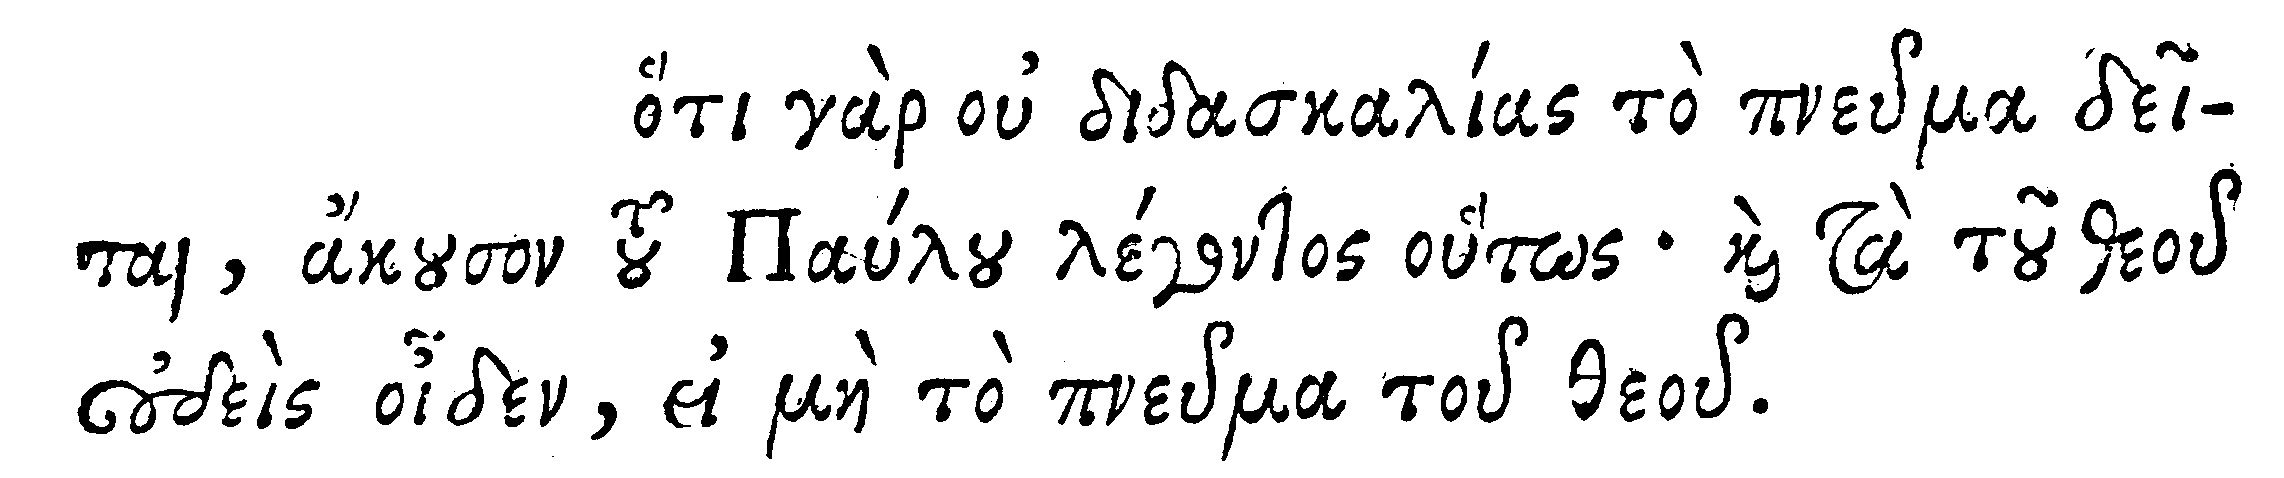 ὅτι γὰρ οὐ διδασκαλίας τὸ πνεῦμα δεῖ-
ται, ἄκουσον τοῦ Παύλου λέγοντος οὕτως · καὶ τὰ τοῦ θεοῦ
οὐδεὶς οἶδεν, εἰ μὴ τὸ πνεῦμα τοῦ θεοῦ.